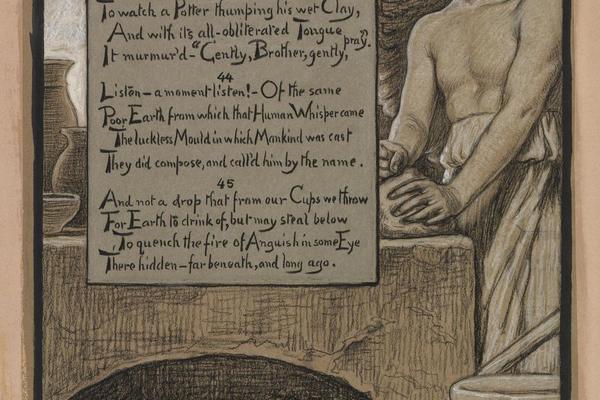 To watch a Potter thumping his wet Clay,
And with its all-obliterated Tongue
It murmur'd-"Gently, Brother, gently, pray."
44
Listen-a moment listen!-Of the same
Poor Earth from which that Human Whisper came
The luckless Mould in which Mankind was cast
They did compose, and call'd him by the name.
45
And not a drop that from our Cups we throw
For Earth to drink of, but may steal below
To quench the fire of Anguish in some Eye
There hidden-far beneath, and long ago.